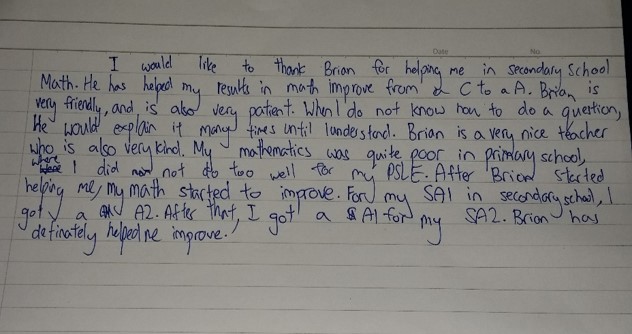 Date No.
I would like to thank Brian for helping me in secondary school
Math. He has helped my results in math improve from a C to a A. Brian is
very friendly, and is also very patient. When I do not know how to do a question,
He would explain it many times until I understand. Brian is a very nice teacher
who is also very kind. My mathematics was quite poor in primary school,
where I did not do too well for my PSLE. After Brian started
helping me, my math started to improve. For my SA1 in secondary school, I
got a A2. After that, I got a A1 for my SA2. Brian has
definately helped me improve.